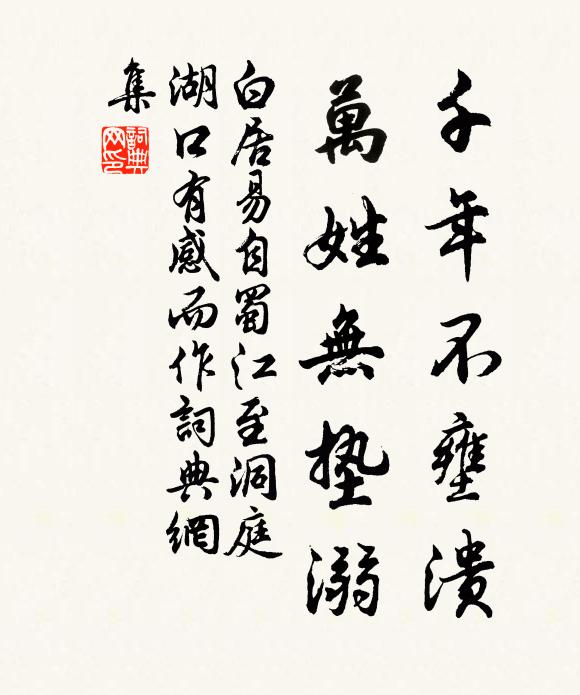 千年不壅潰
萬姓無墊溺
白居易自蜀江至洞庭
湖口有感而作詞典網
集
詞典网印